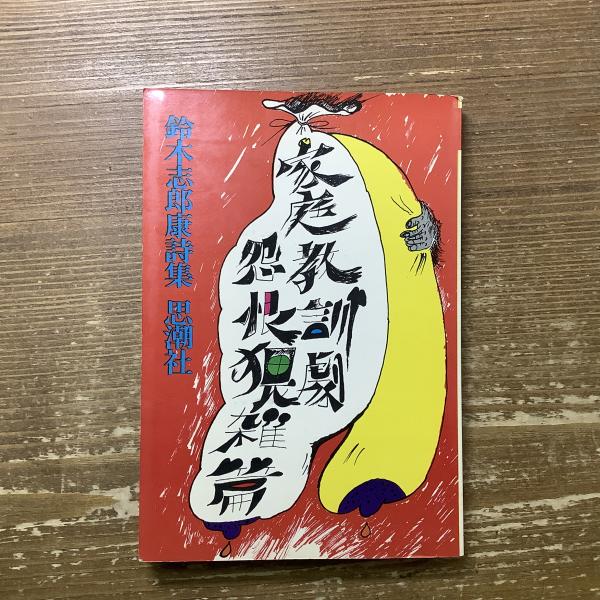 家庭教訓劇
怨恨猥雑篇
鈴木志郎康詩集 思潮社